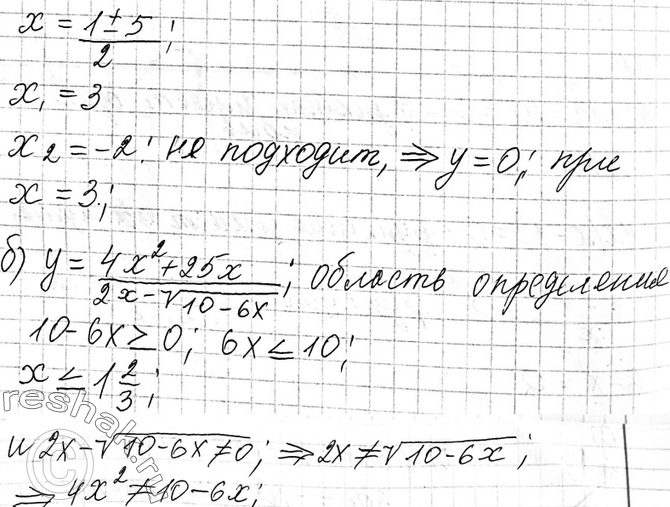 x = (1±5)/2;
x₁ = 3
x₂ = -2: не подходит, ⇒ y = 0; при
x = 3;
б) y = (4x²+25x)/(2x-√(10-6x)); область определения
10-6x ≥ 0; 6x ≤ 10;
x ≤ 1 2/3;
и 2x-√(10-6x≠0); ⇒ 2x≠√(10-6x);
⇒ 4x² ≠ 10-6x;